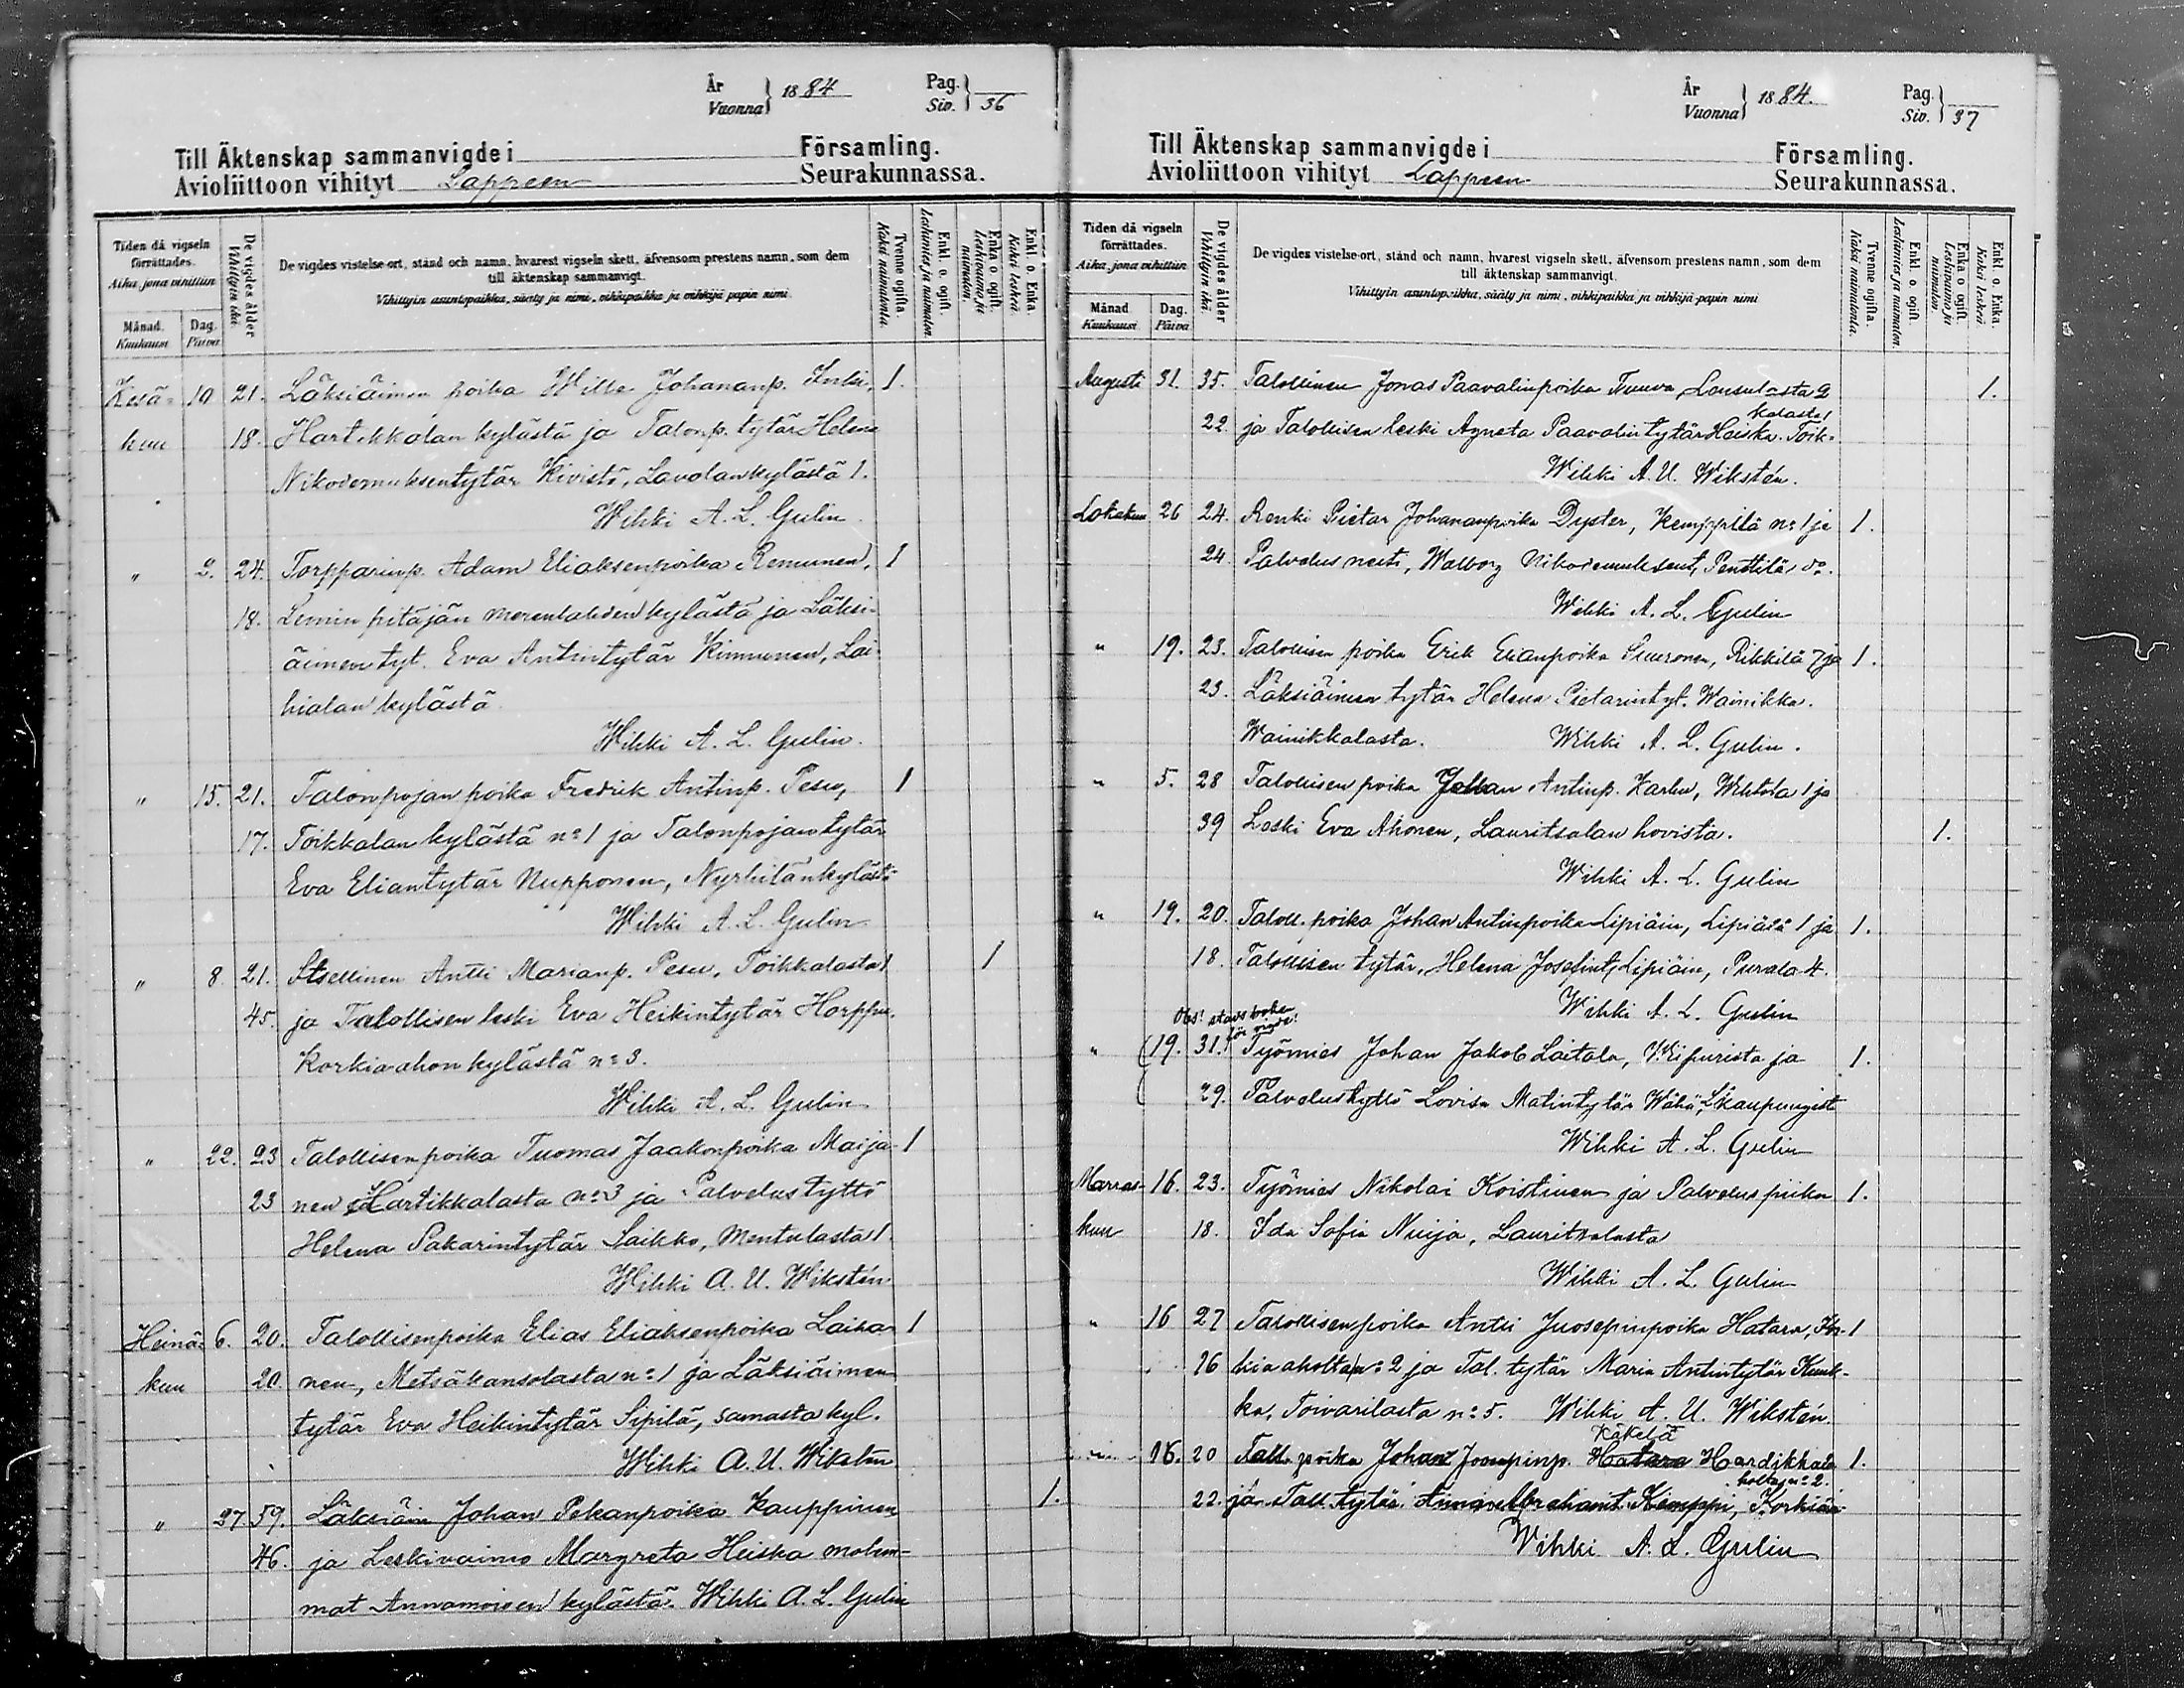 År
Vuonna } 1884
Pag.
Siv. } 36
Till Äktenskap sammanvigde i Församling.
Avioliittoon vihityt Lappeen Seurakunnassa.
Tiden då vigseln förrättades.
Aika, jona vihittiin
Månad. Kuukausi
Dag. Päivä
De vigdes ålder
Vihittyin ikä
De vigdes vistelse-ort, stånd och namn, hvarest vigseln skett, äfvensom prestens namn, som dem
till äktenskap sammanvigt.
Vihittyin asuntopaikka, sääty ja nimi, vihkipaikka ja vihkijä papin nimi
Tvenne ogifta.
Kaksi naimatonta.
Enkl. o. ogift.
Leskimies ja naimaton.
Enka o. ogift.
Leskivaimo ja naimaton.
Enkl. o. Enka.
Kaksi leskeä
Kesä- 10 21. Läksiäimen poika Wille Johananp. Inki, 1.
kuu 18. Hartikkalan kylästä ja Talonp. tytär Helena
Nikodemuksentytär Kivistö, Lavolan kylästä 1.
Wihki A. L. Gulin
" 2. 24. Torpparinp. Adam Eliaksenpoika Remunen, 1
18. Lemin pitäjän Merenlahden kylästä ja Läksi-
äimen tyt. Eva Antintytär Kinnunen, Lai-
hialan kylästä
Wihki A. L. Gulin.
" 15. 21. Talonpojan poika Fredrik Antinp. Pesu, 1
17. Toikkalan kylästä n:o 1 ja Talonpojan tytär
Eva Eliantytär Nupponen, Nyrhilän kylästä
Wihki A. L. Gulin
" 8 21. Itsellinen Antti Marianp. Pesu, Toikkalasta 1 1
45. ja Talollisen leski Eva Heikintytär Horppu,
Korkia-ahon kylästä n:o 3.
Wihki A. L. Gulin
" 22. 23 Talollisen poika Tuomas Jaakonpoika Maija- 1
23 nen Hartikkalasta n:o 3 ja Palvelustyttö
Helena Sakarintytär Saikko, Mentulasta 1
Wihki A. U. Wikstén
Heinä- 6. 20. Talollisenpoika Elias Eliaksenpoika Laika- 1
kuu 20. nen, Metsäkansolasta n:o 1 ja Läksiäimen
tytär Eva Heikintytär Sipilä, samasta kyl.
Wihki A. U. Wikstén
" 27 59. Läksiäin Johan Pekanpoika Kauppinen 1.
46. ja Leskivaimo Margreta Heiska molem-
mat Armamoisen kylästä. Wihki A. L. Gulin
År
Vuonna } 1884.
Pag.
Siv. } 37
Till Äktenskap sammanvigde i Församling.
Avioliittoon vihityt Lappeen Seurakunnassa.
Tiden då vigseln förrättades.
Aika, jona vihittiin
Månad Kuukausi
Dag. Päivä
De vigdes ålder
Vihittyin ikä
De vigdes vistelse-ort, stånd och namn, hvarest vigseln skett, äfvensom prestens namn, som dem
till äktenskap sammanvigt.
Vihittyin asuntopaikka, sääty ja nimi, vihkipaikka ja vihkijä-papin nimi
Tvenne ogifta.
Kaksi naimatonta.
Enkl. o. ogift.
Leskimies ja naimaton.
Enka o. ogift.
Leskivaimo ja naimaton
Enkl. o. Enka.
Kaksi leskeä
Augusti 31. 35. Talollinen Jonas Paavalinpoika Tuuva, 2 1.
kalasta 1
22. ja Talollisen leski Agneta Paavalintytär Heiska. Toik-
Wihki A. U. Wikstén.
Lokakuu 26 24. Renki Pietar Johananpoika Dyster, Kemppilä n:o 1 ja 1.
24 Palvelus neiti, Walborg Nikodemuksent. Penttilä, do.
Wihki A. L. Gulin
" 19. 23. Talollisen poika Erik Elianpoika Suuronen, Rikkilä 7 ja 1.
23. Läksiäimen tytär Helena Pietarintyt. Wainikka.
Wainikkalasta. Wihki A. L. Gulin.
" 5. 28 Talollisen poika Johan Antinp. Karhu, Wihtola 1 ja
39 Leski Eva Ahonen, Lauritsalan hovista. 1.
Wihki A. L. Gulin
" 19. 20. Taloll. poika Johan Antinpoika Lipiäin, Lipiälä 1 ja 1.
18. Talollisen tytär, Helena Josefint. Lipiäin, Purala 4.
Wihki A. L. Gulin
Obs!
" 19. 31. Työmies Johan Jakob Laitala, Wiipurista ja 1.
29. Palvelustyttö Lovisa Matintytär Wähä, L:kaupungista
Wihki A. L. Gulin
Marras- 16. 23. Työmies Nikolai Koistinen ja Palvelus piika 1.
kuu 18. Ida Sofia Nuija, Lauritsalasta
Wihki A. L. Gulin
" 16 27 Talollisen poika Antti Juosepinpoika Hatara, Kor- 1
26 kia aholta n:o 2 ja Tal. tytär Maria Antintytär Kuuk-
ka, Toivarilasta n:o 5. Wihki A. U. Wikstén.
Käkelä
" 16. 20 Tall. poika Johan Joosepinp. Hatara Hardikkala 1.
holta n:o 2.
22. ja Tall. tytär Anna Abrahamt. Kemppi, Korkiaa-
Wihki A. L. Gulin